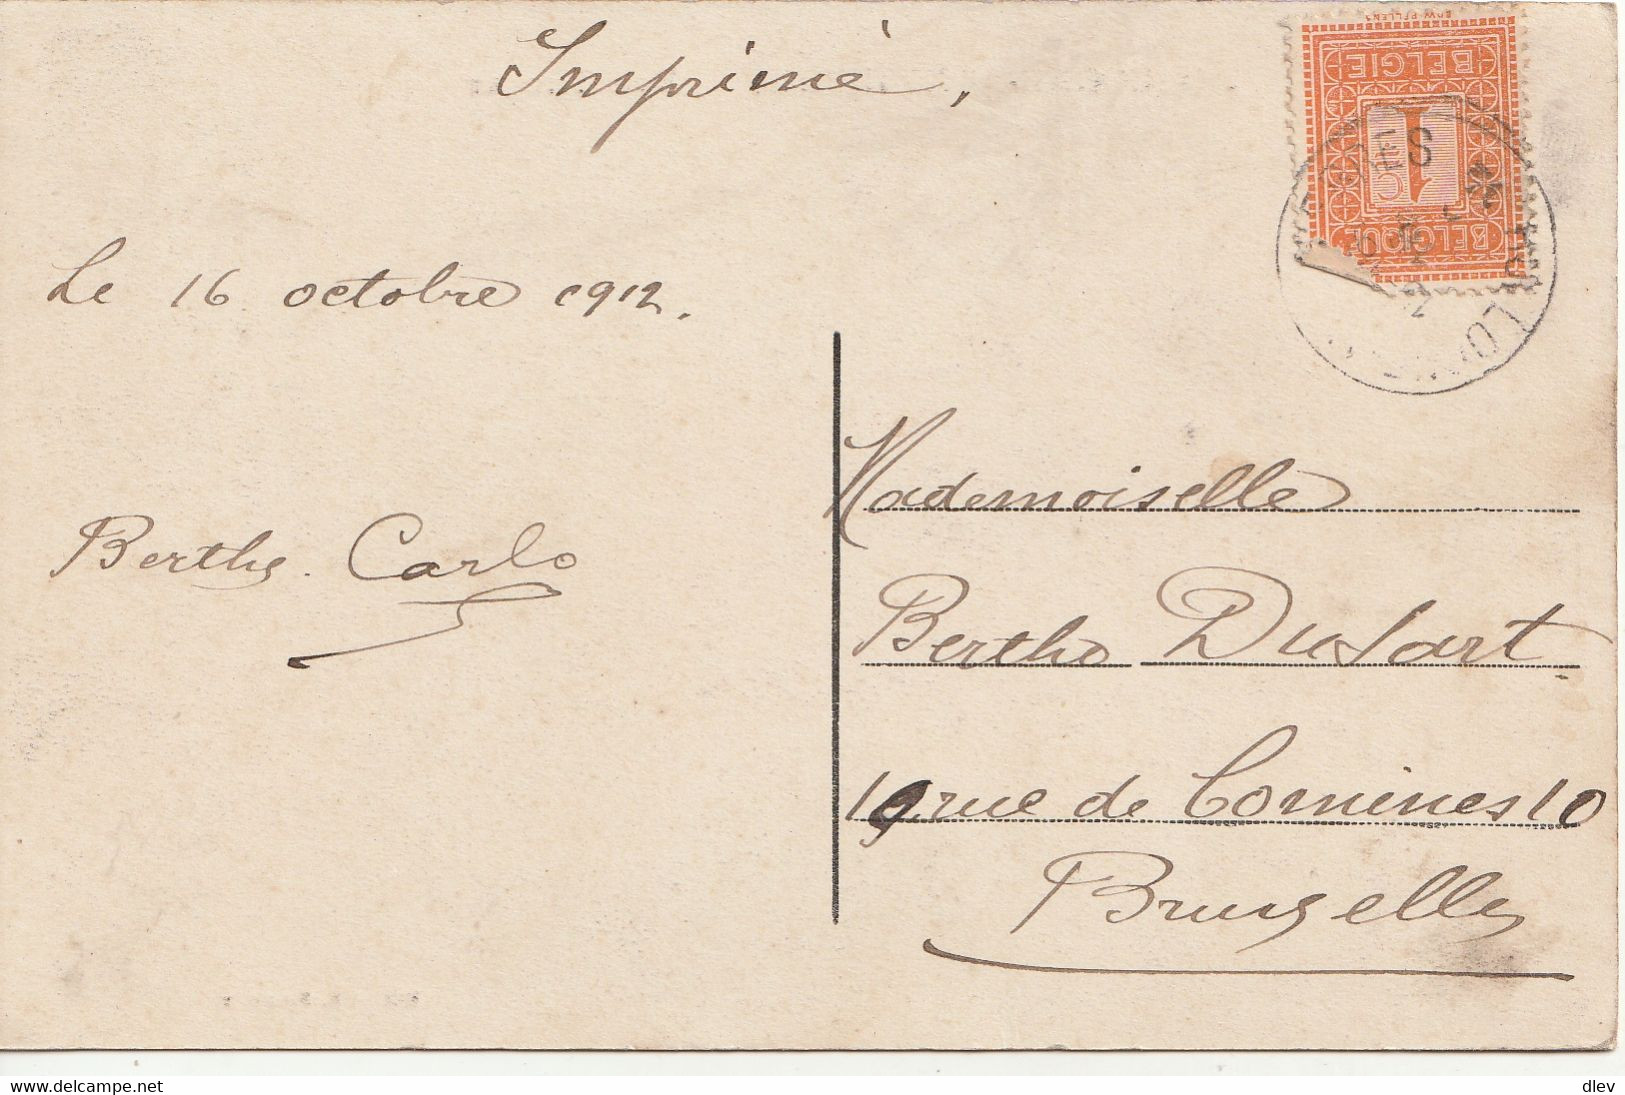 Imprimé,
BELGIE
1
BELGIQUE
Le 16 octobre 1912.
Berthe Carlo
Mademoiselle
Berthe Dusart
19 rue de Comines 10
Bruxelles
www.delcampe.net
dlev